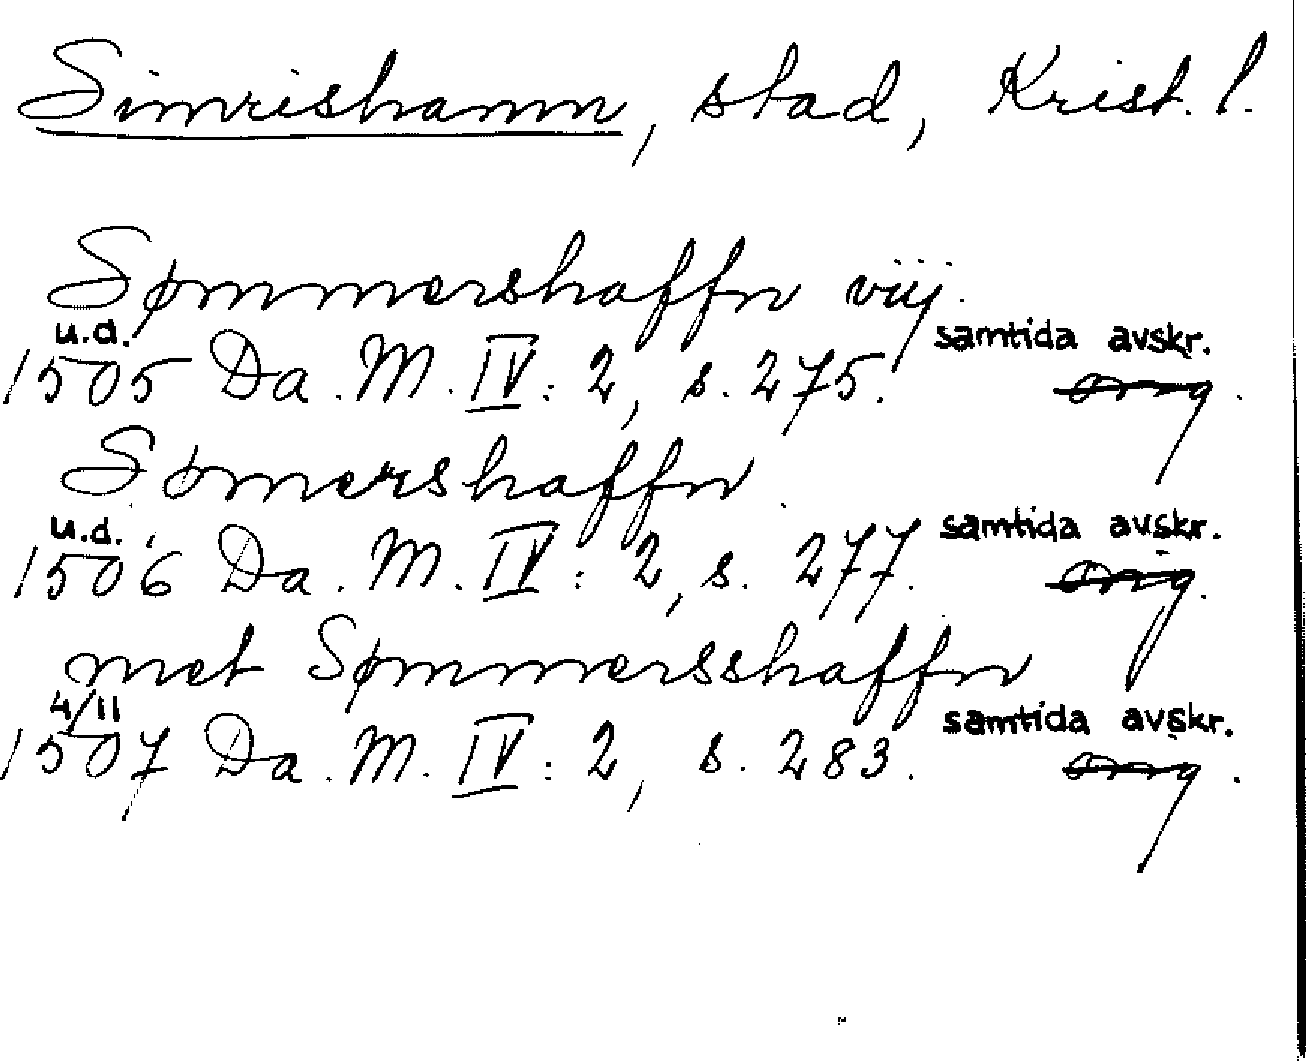 Simrishamn, stad, Krist. l.
Sømmershaffn viij.
u.d. samtida avskr.
1505 Da. M. IV: 2, s. 275. orig.
Sømershaffn
u.d. samtida avskr.
1506 Da. M. IV: 2, s. 277. orig.
met Sømmersshaffn
4/11 samtida avskr.
1507 Da. M. IV: 2, s. 283. orig.